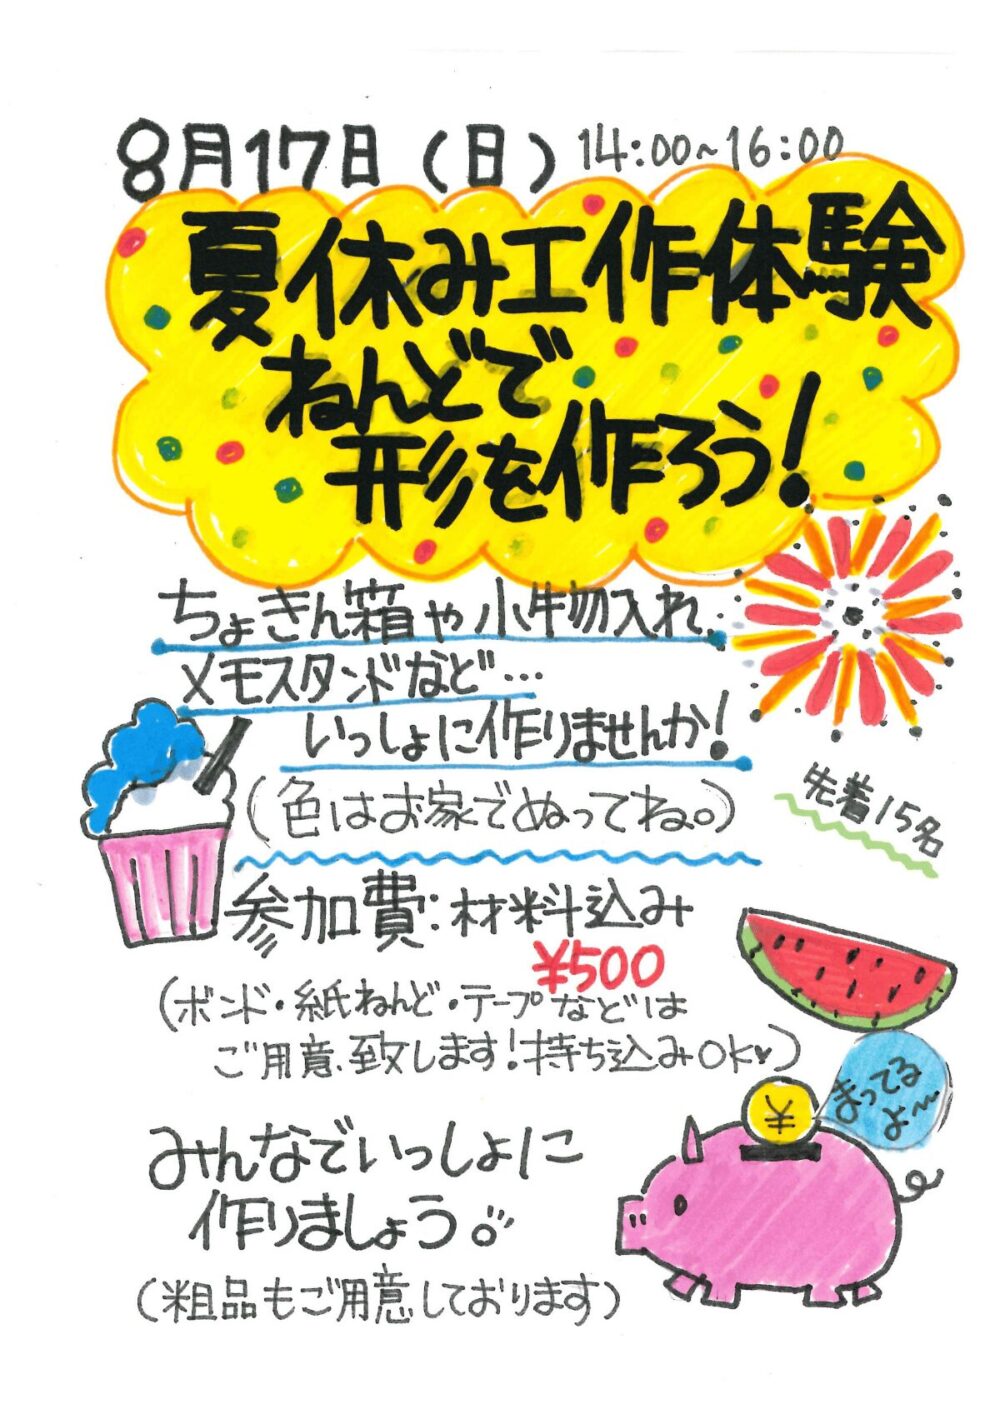 8月17日(日) 14:00~16:00
夏休み工作体験
ねんどで
形を作ろう!
ちょきん箱や小物入れ
メモスタンドなど…
いっしょに作りませんか!
(色はお家でぬってね。)
先着15名
参加費:材料込み
¥500
(ボンド・紙ねんど・テープなどは
ご用意致します!持ち込みOK♥)
¥
まってる
よ〜
みんなでいっしょに
作りましょう。
(粗品もご用意しております)